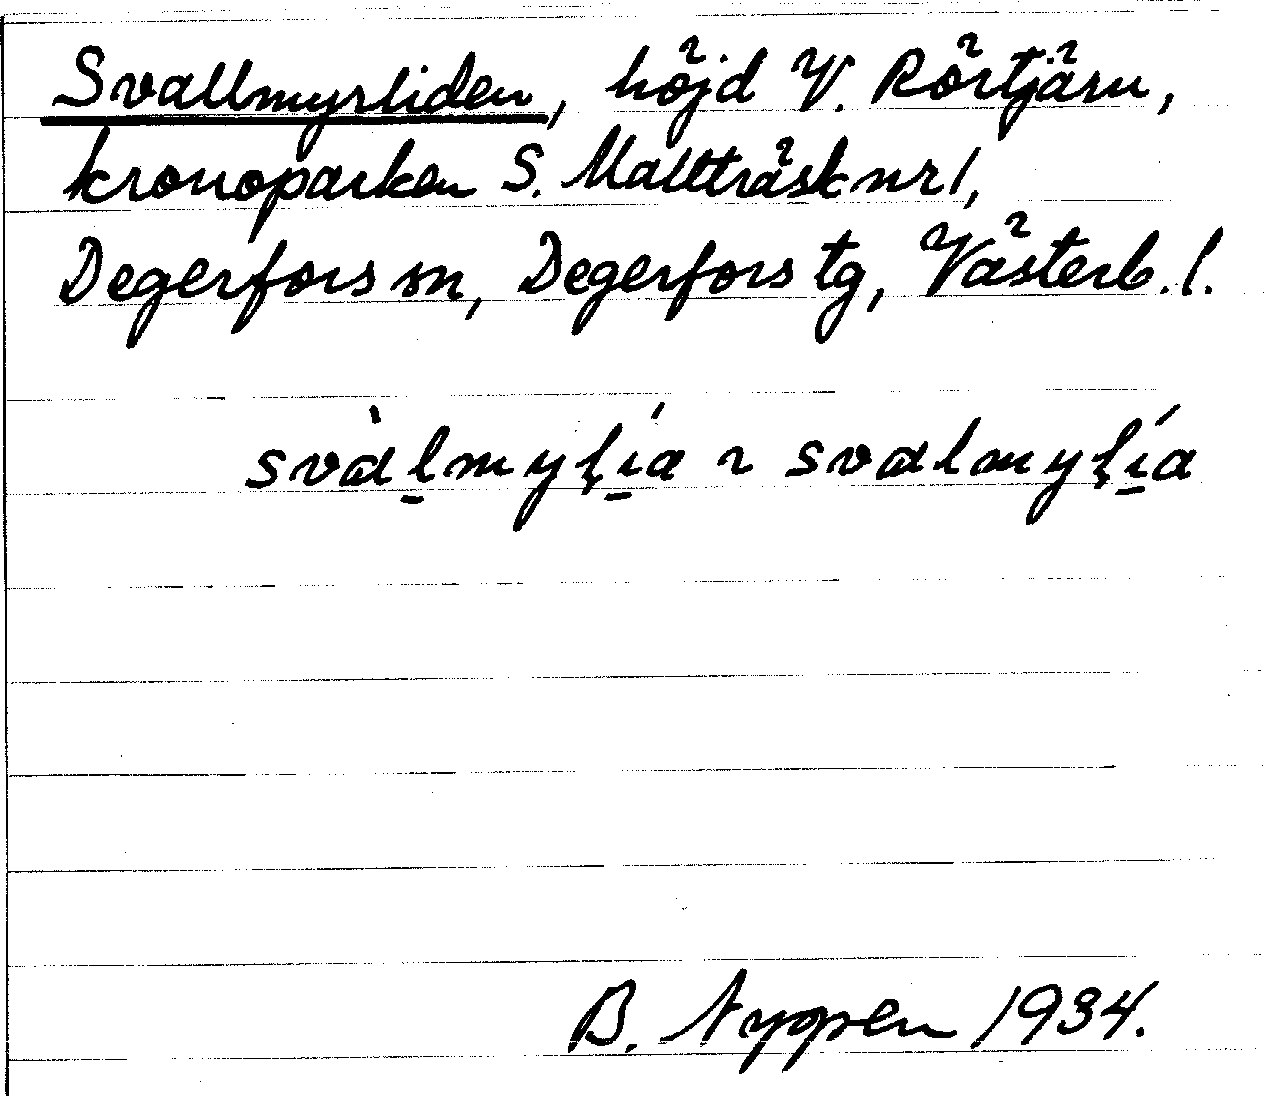 Svallmyrliden, höjd V. Rörtjärn,
kronoparken S. Mallträsk nr 1,
Degerfors sn, Degerfors tg, Västerb. l.
svàl̠myḷí̠a ~ svalmyḷí̠a
B. 1934.